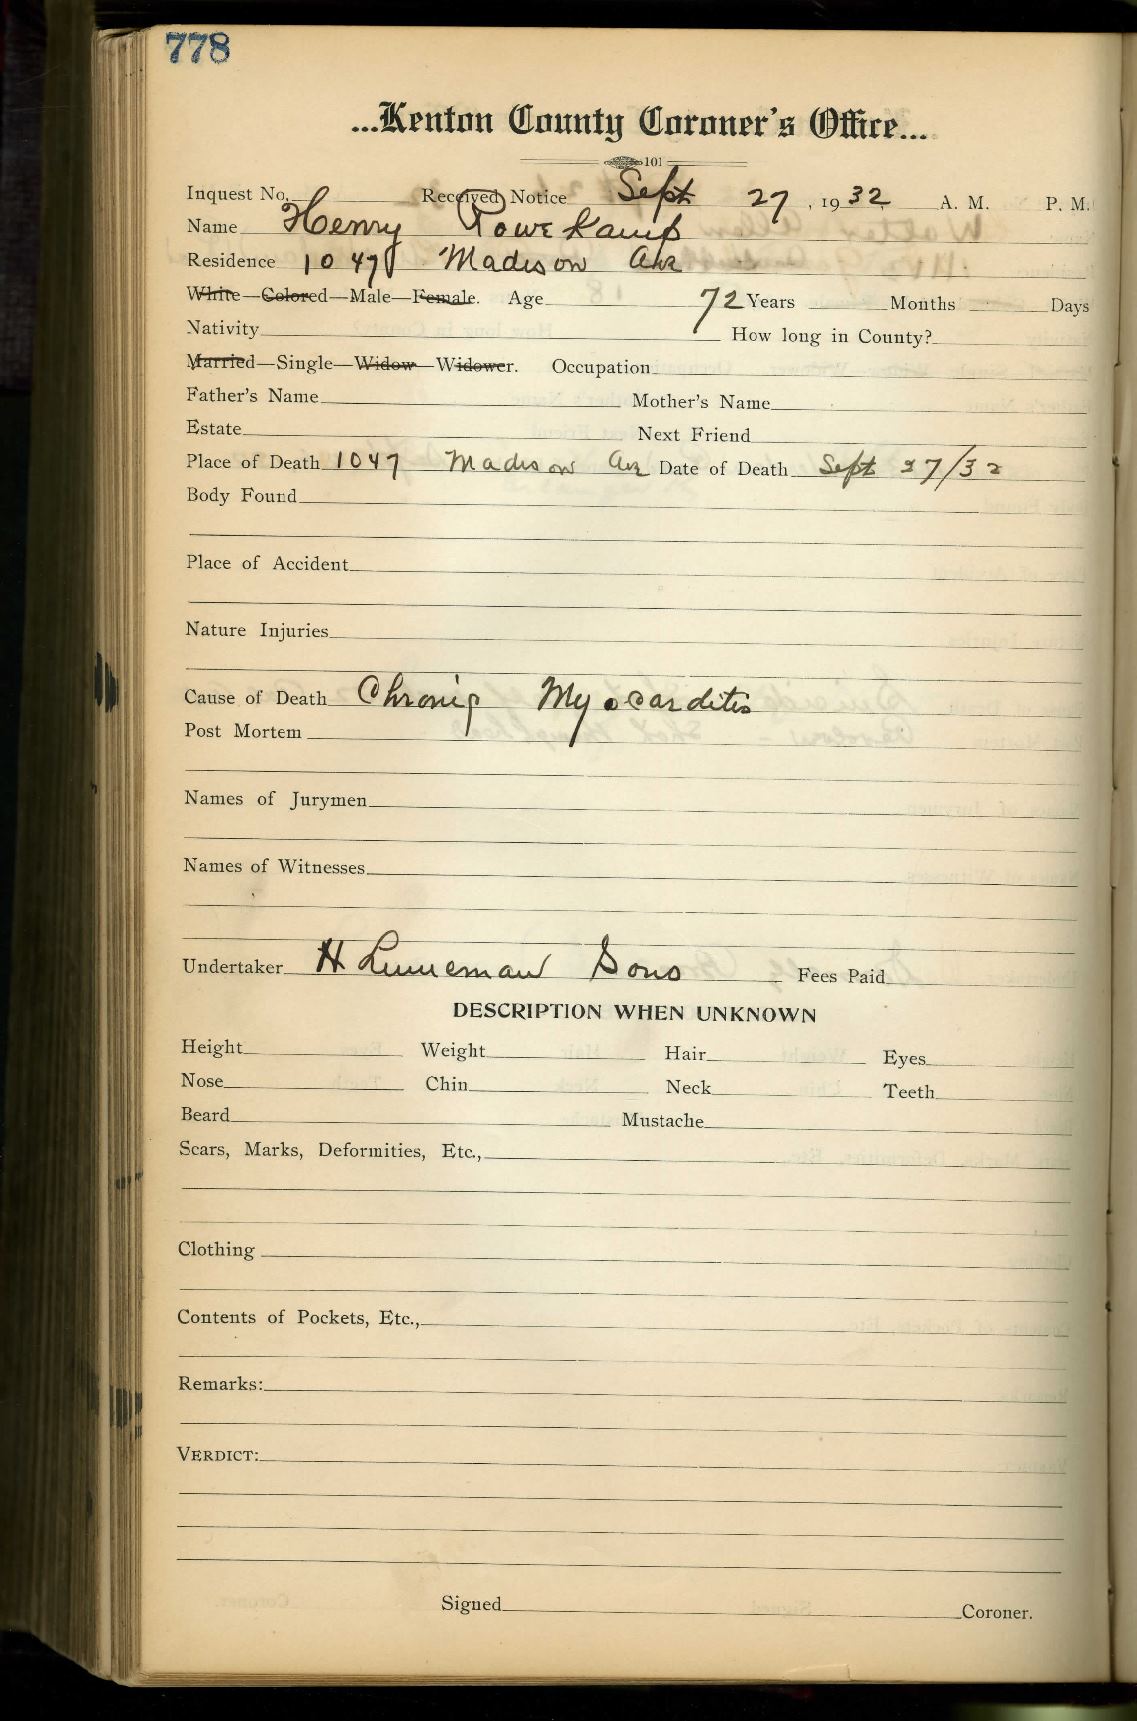 778
...Kenton County Coroner's Office...
101
Inquest No. Received Notice Sept 27, 1932, A. M. P. M.
Name Henry Rowekamp
Residence 1047 Madison Ave
White—Colored—Male—Female. Age 72 Years Months Days
Nativity How long in County?
Married—Single—Widow—Widower. Occupation
Father's Name Mother's Name
Estate Next Friend
Place of Death 1047 Madison Ave Date of Death Sept 27/32
Body Found
Place of Accident
Nature Injuries
Cause of Death Chronic Myocarditis
Post Mortem
Names of Jurymen
Names of Witnesses
Undertaker H Linneman Sons Fees Paid
DESCRIPTION WHEN UNKNOWN
Height Weight Hair Eyes
Nose Chin Neck Teeth
Beard Mustache
Scars, Marks, Deformities, Etc.,
Clothing
Contents of Pockets, Etc.,
Remarks:
VERDICT:
Signed Coroner.